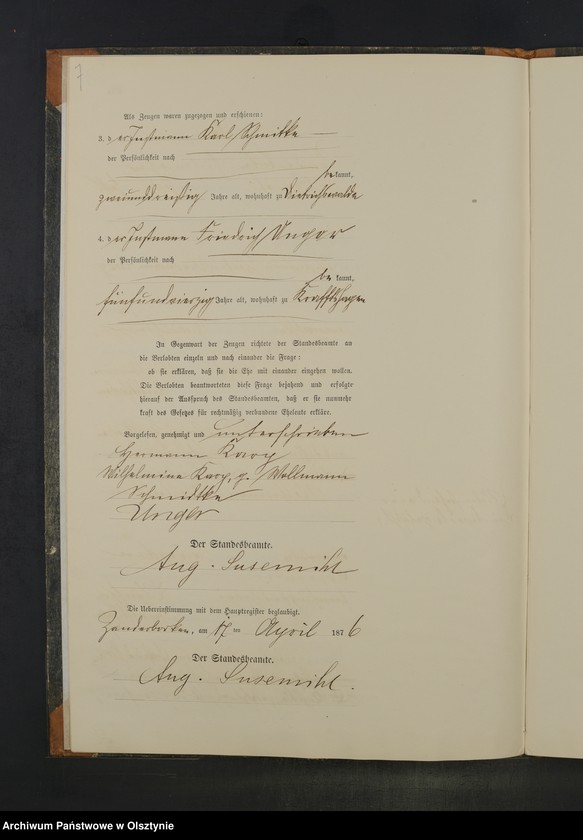 7
Als Zeugen waren zugezogen und erschienen:
3. der Instmann Karl Schmitke
der Persönlichkeit nach
be kannt,
zweiunddreißig Jahre alt, wohnhaft zu Dietrichswalde
4. der Instmann Friedrich Unger
der Persönlichkeit nach
be kannt,
fünfundvierzig Jahre alt, wohnhaft zu Kraftshagen
In Gegenwart der Zeugen richtete der Standesbeamte an
die Verlobten einzeln und nach einander die Frage:
ob sie erklären, daß sie die Ehe mit einander eingehen wollen.
Die Verlobten beantworteten diese Frage bejahend und erfolgte
hierauf der Ausspruch des Standesbeamten, daß er sie nunmehr
kraft des Gesetzes für rechtmäßig verbundene Eheleute erkläre.
Vorgelesen, genehmigt und unterschrieben
Hermann Karp
Wilhelmine Karp, g. Wollmann
Schmidtke
Unger
Der Standesbeamte.
Aug. Susemihl
Die Uebereinstimmung mit dem Hauptregister beglaubigt.
Zandersdorf, am 17 ten April 1876
Der Standesbeamte.
Aug. Susemihl.
Archiwum Państwowe w Olsztynie